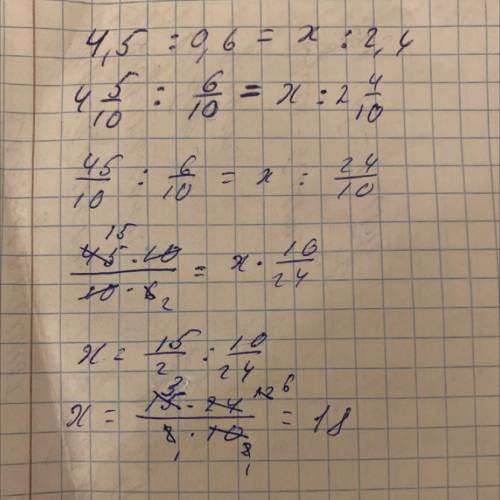 4,5 : 0,6 = x : 2,4
4 5/10 : 6/10 = x : 2 4/10
45/10 : 6/10 = x : 24/10
15
45 · 10 / 10 · 6 2 = x · 10/24
x = 15/2 : 10/24
x = 3 15 · 24 12 6 / 2 1 · 10 2 1 = 18